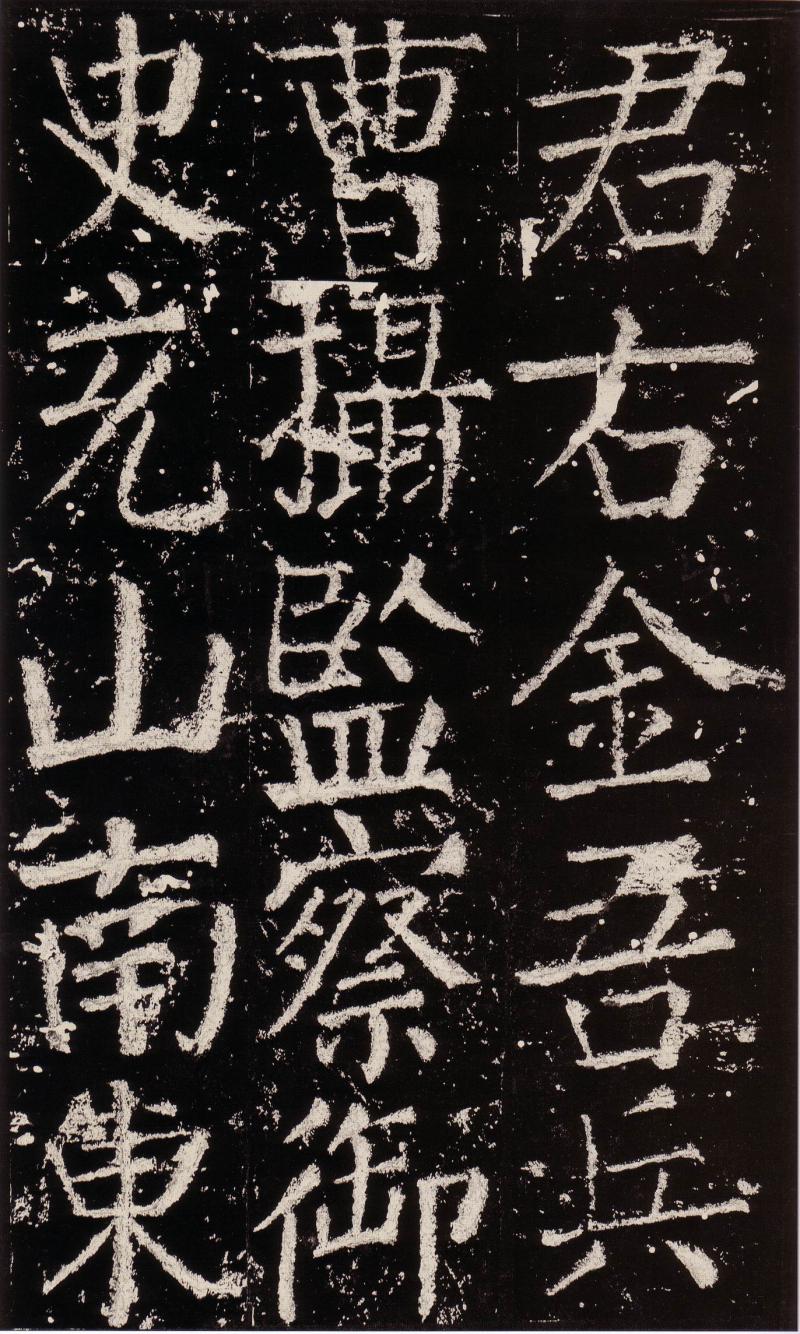 君右金吾兵
曹攝監察御
史充山南東